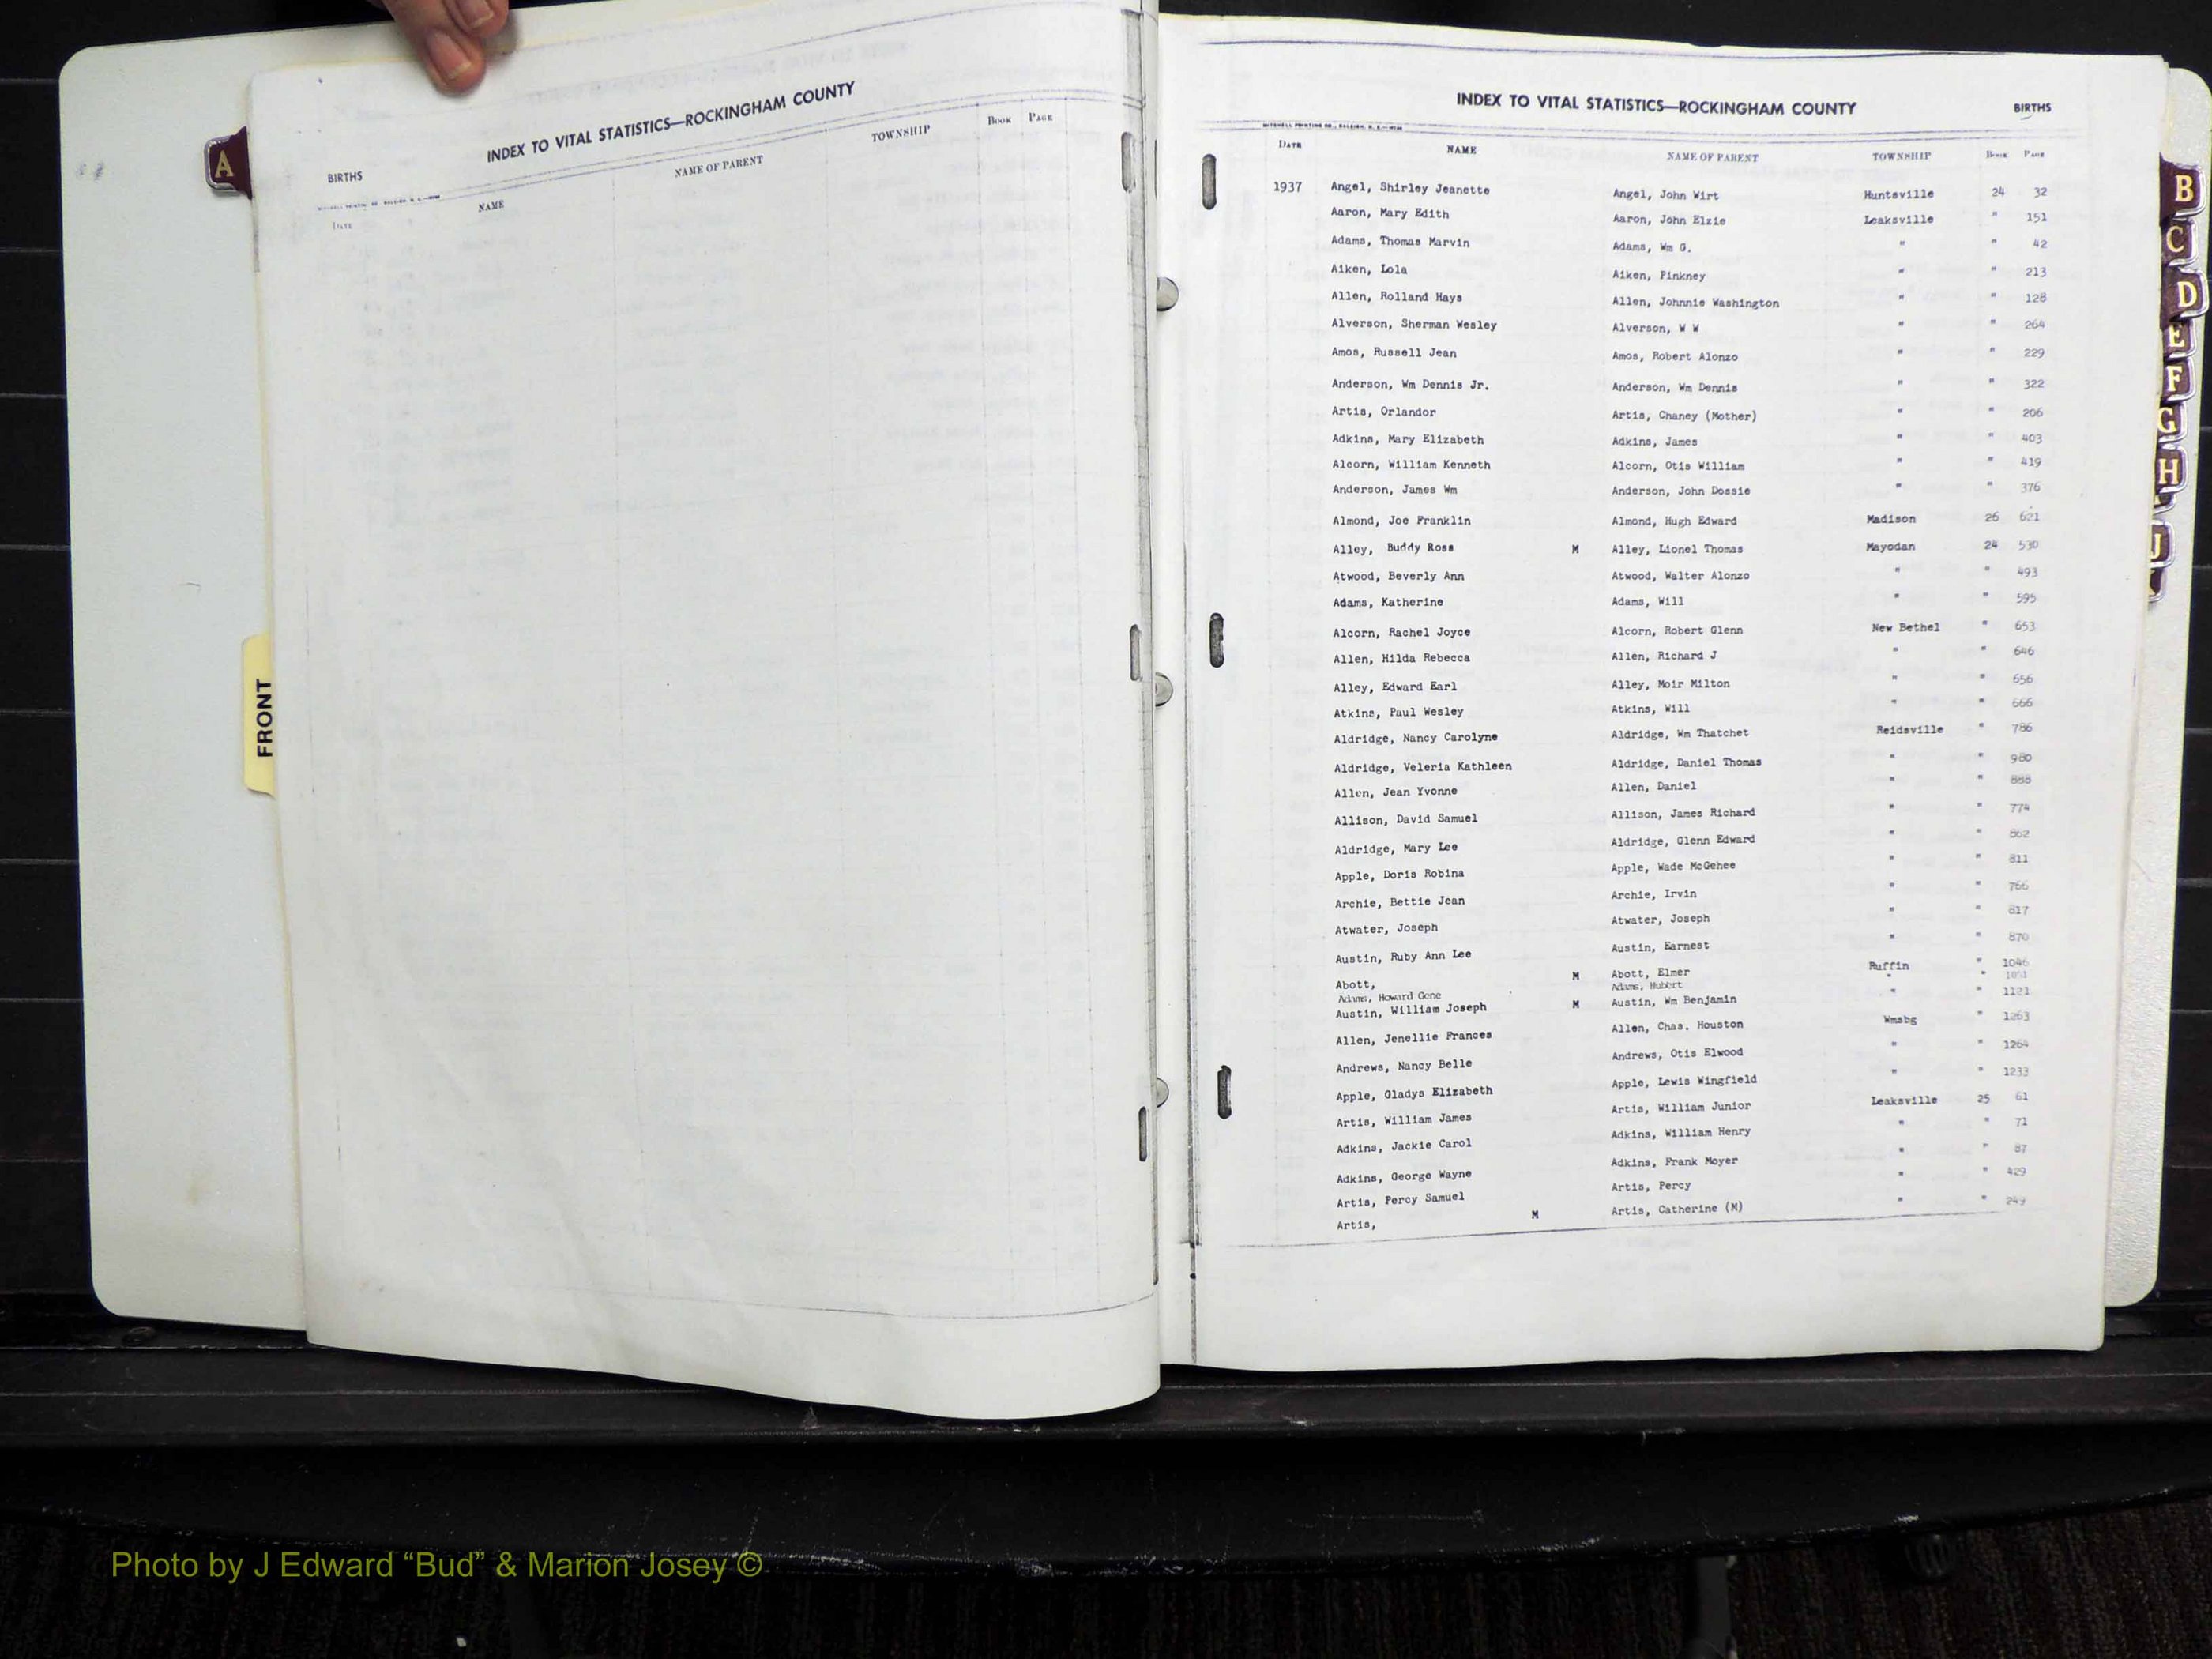 A
INDEX TO VITAL STATISTICS—ROCKINGHAM COUNTY
BIRTHS
DATE NAME NAME OF PARENT TOWNSHIP BOOK PAGE
FRONT
INDEX TO VITAL STATISTICS—ROCKINGHAM COUNTY BIRTHS
DATE NAME NAME OF PARENT TOWNSHIP BOOK PAGE
1937 Angel, Shirley Jeanette Angel, John Wirt Huntsville 24 32
Aaron, Mary Edith Aaron, John Elzie Leaksville " 151
Adams, Thomas Marvin Adams, Wm G. " " 42
Aiken, Lola Aiken, Pinkney " " 213
Allen, Rolland Hays Allen, Johnnie Washington " " 128
Alverson, Sherman Wesley Alverson, W W " " 264
Amos, Russell Jean Amos, Robert Alonzo " " 229
Anderson, Wm Dennis Jr. Anderson, Wm Dennis " " 322
Artis, Orlandor Artis, Chaney (Mother) " " 206
Adkins, Mary Elizabeth Adkins, James " " 403
Alcorn, William Kenneth Alcorn, Otis William " " 419
Anderson, James Wm Anderson, John Dossie " " 376
Almond, Joe Franklin Almond, Hugh Edward Madison 26 621
Alley, Buddy Ross M Alley, Lionel Thomas Mayodan 24 530
Atwood, Beverly Ann Atwood, Walter Alonzo " " 493
Adams, Katherine Adams, Will " " 595
Alcorn, Rachel Joyce Alcorn, Robert Glenn New Bethel " 653
Allen, Hilda Rebecca Allen, Richard J " " 646
Alley, Edward Earl Alley, Moir Milton " " 656
Atkins, Paul Wesley Atkins, Will " " 666
Aldridge, Nancy Carolyne Aldridge, Wm Thatchet Reidsville " 786
Aldridge, Veleria Kathleen Aldridge, Daniel Thomas " " 980
Allen, Jean Yvonne Allen, Daniel " " 888
Allison, David Samuel Allison, James Richard " " 774
Aldridge, Mary Lee Aldridge, Glenn Edward " " 862
Apple, Doris Robina Apple, Wade McGehee " " 811
Archie, Bettie Jean Archie, Irvin " " 766
Atwater, Joseph Atwater, Joseph " " 817
Austin, Ruby Ann Lee Austin, Earnest " " 870
Abott, M Abott, Elmer Ruffin " 1046
Adams, Howard Gene Adams, Hubert " "
Austin, William Joseph M Austin, Wm Benjamin " " 1121
Allen, Jenellie Frances Allen, Chas. Houston Wmsbg " 1263
Andrews, Nancy Belle Andrews, Otis Elwood " " 1264
Apple, Gladys Elizabeth Apple, Lewis Wingfield " " 1233
Artis, William James Artis, William Junior Leaksville 25 61
Adkins, Jackie Carol Adkins, William Henry " " 71
Adkins, George Wayne Adkins, Frank Moyer " " 87
Artis, Percy Samuel Artis, Percy " " 429
Artis, M Artis, Catherine (M) " " 249
B
C
D
E
F
G
H
J
Photo by J Edward “Bud” & Marion Josey ©